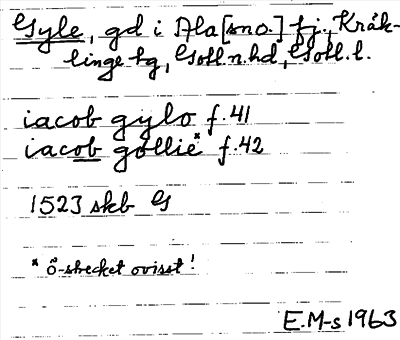 Gyle, gd i Ala[sno.] fj., Kräk-
linge tg, Gotl. n. hd, Gotl. l.
iacob gylo f. 41
iacob göllie* f. 42
1523 skb G
* ö-strecket ovisst!
E. M-s 1963